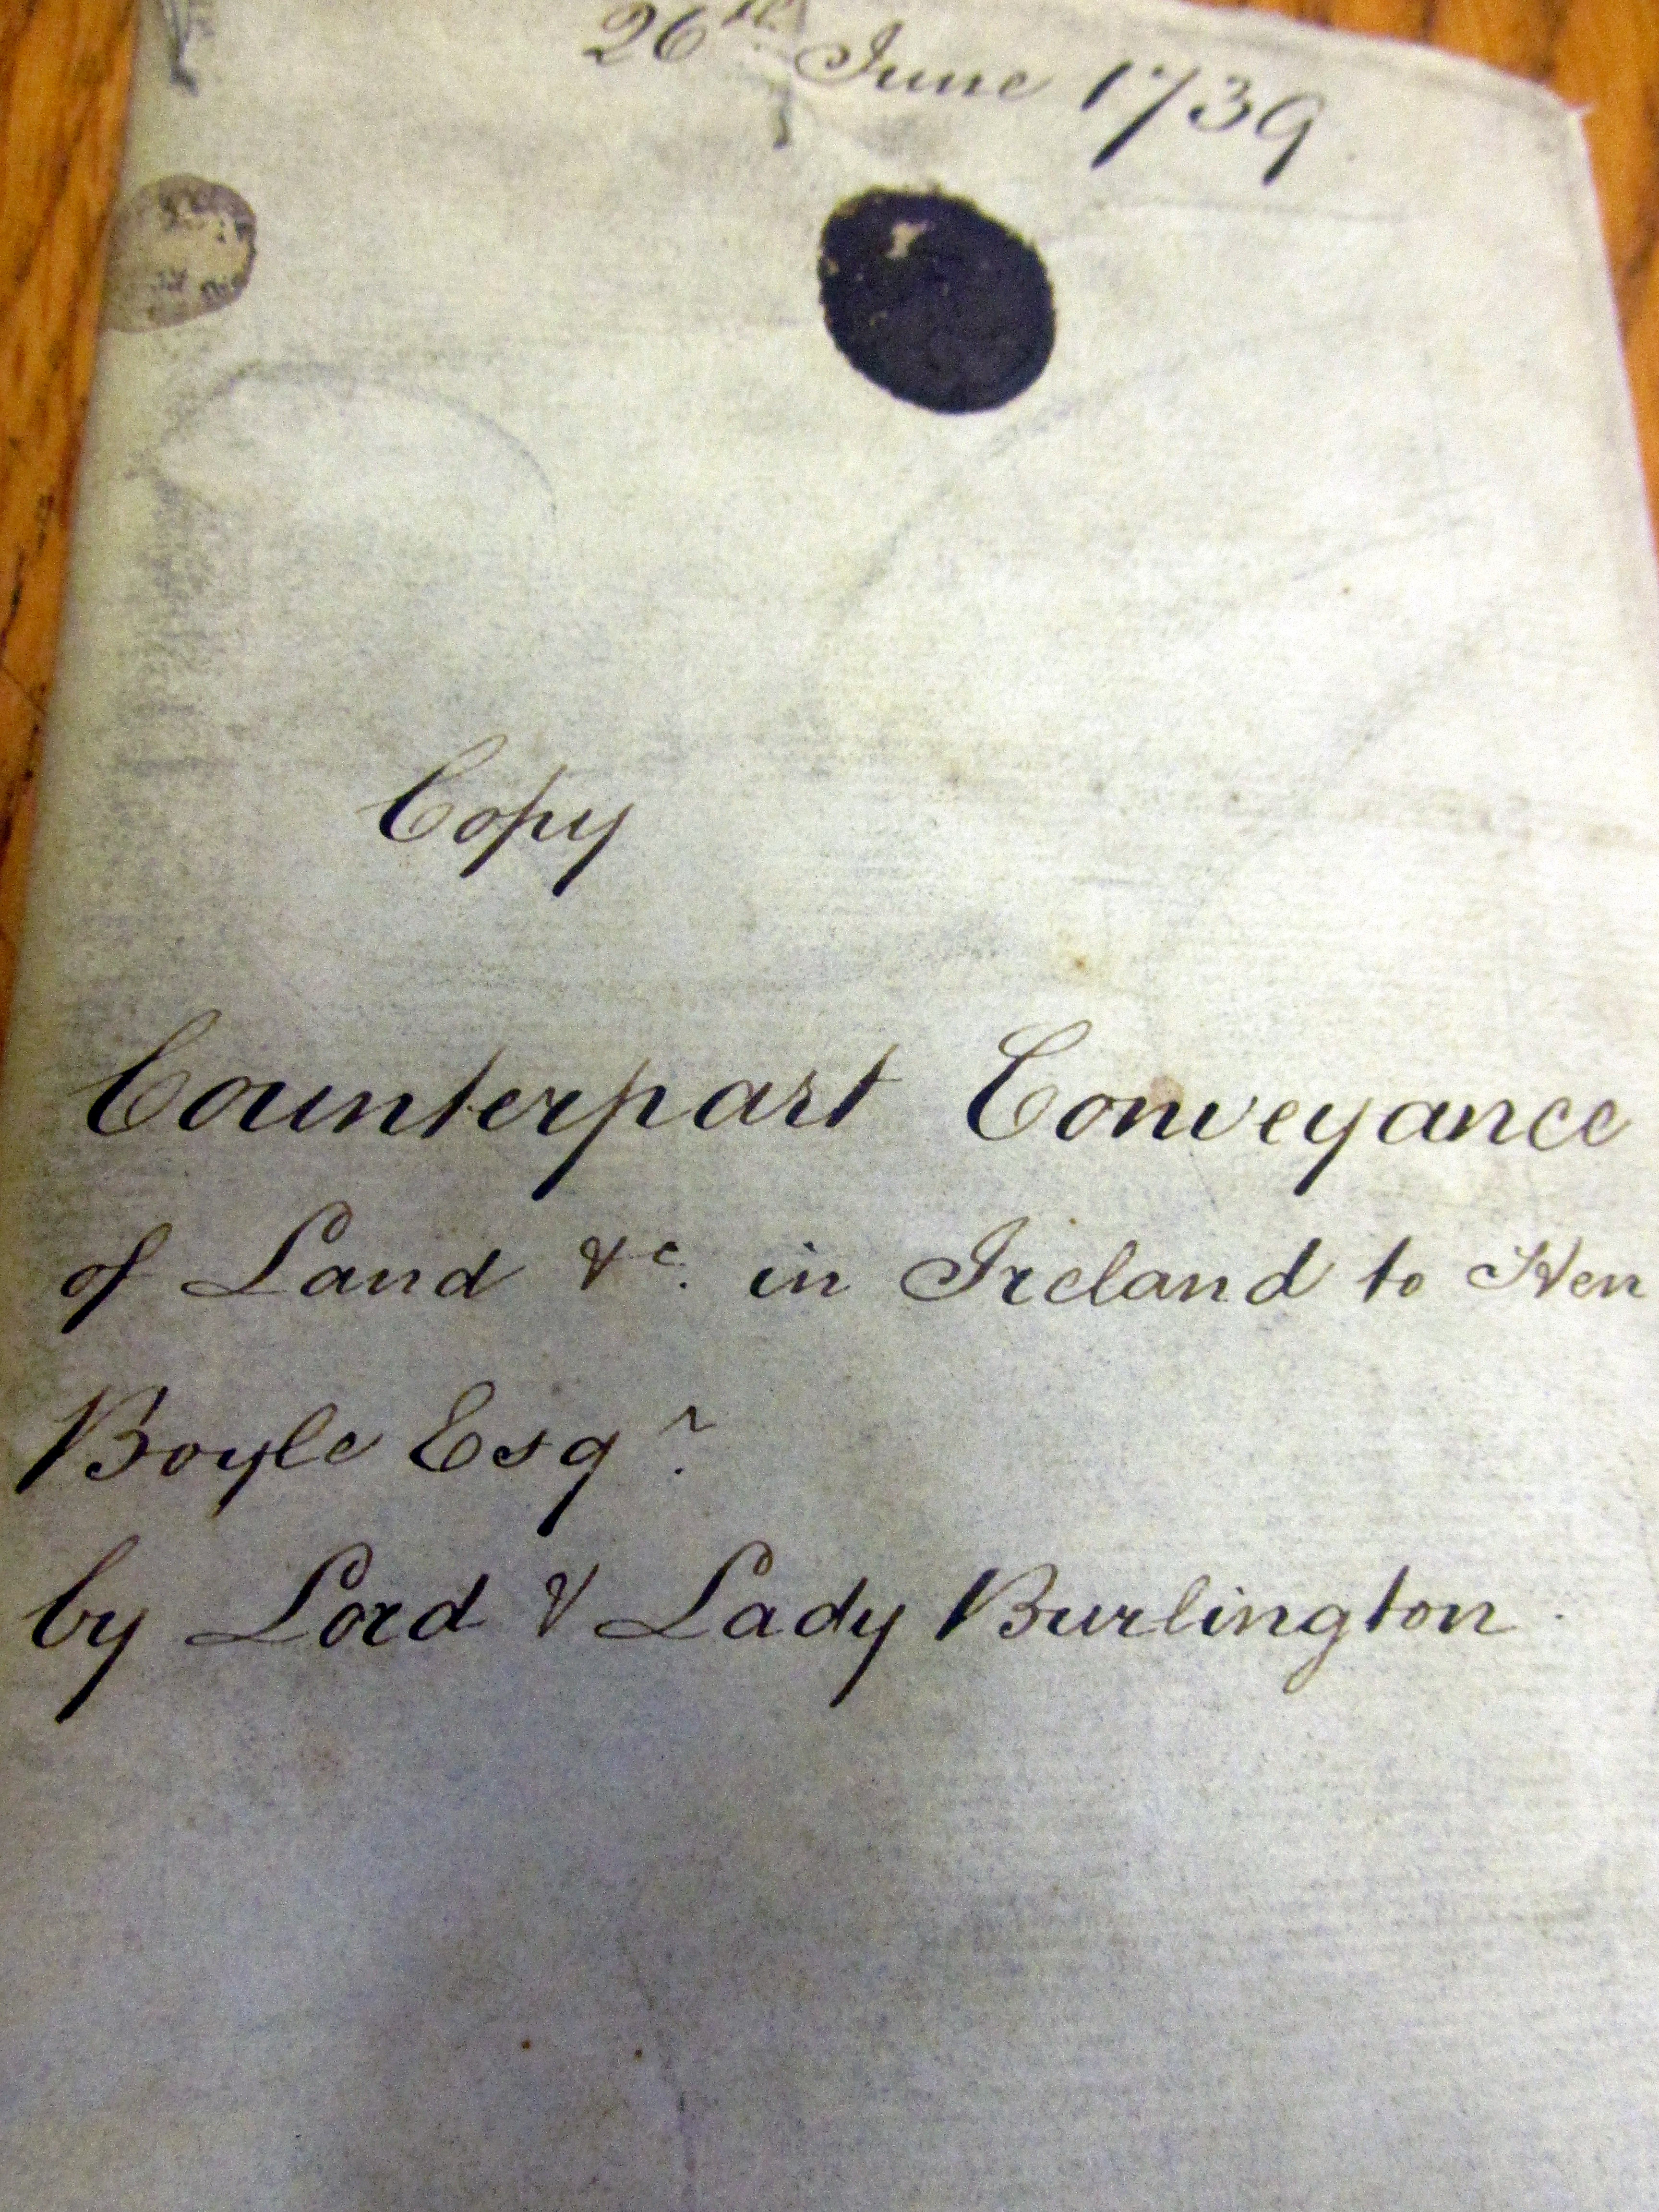 26th June 1739
Copy
Counterpart Conveyance
of Land &c. in Ireland to Hen
Boyle Esqr.
by Lord & Lady Burlington.